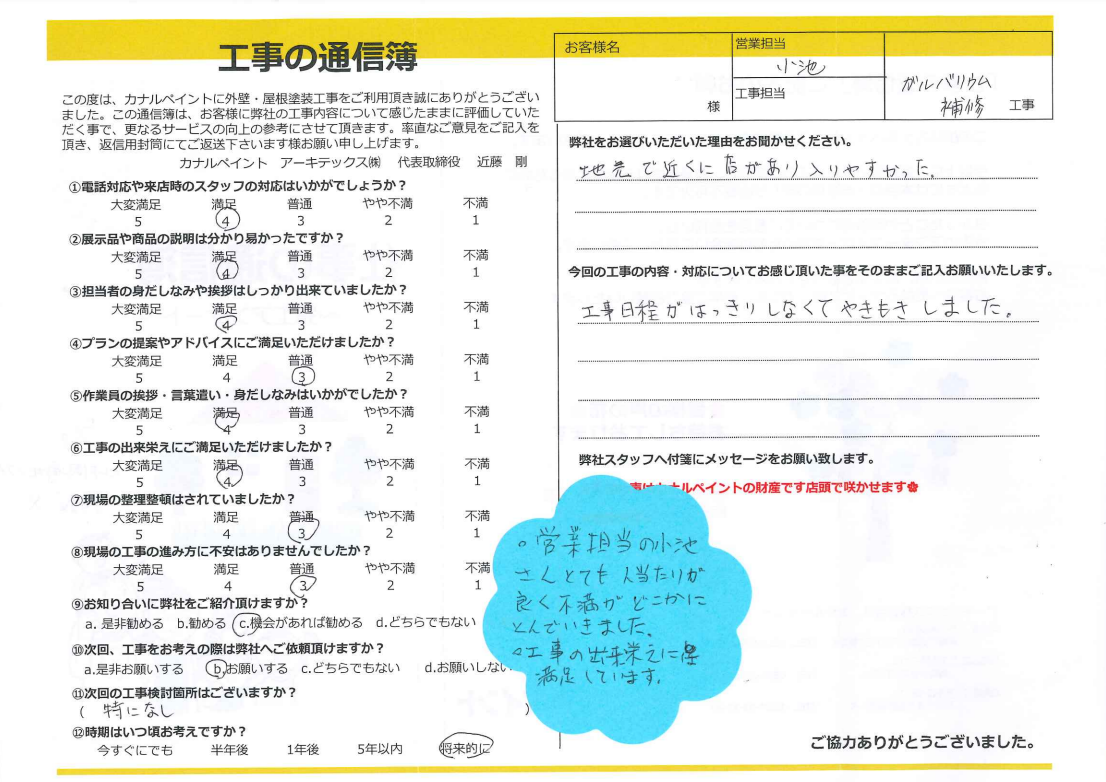 工事の通信簿
この度は、カナルペイントに外壁・屋根塗装工事をご利用頂き誠にありがとうござい
ました。この通信簿は、お客様に弊社の工事内容について感じたままに評価していた
だく事で、更なるサービスの向上の参考にさせて頂きます。率直なご意見をご記入を
頂き、返信用封筒にてご返送下さいます様お願い申し上げます。
カナルペイント アーキテックス㈱ 代表取締役 近藤 剛
①電話対応や来店時のスタッフの対応はいかがでしょうか？
大変満足 満足 普通 やや不満 不満
5 4 3 2 1
②展示品や商品の説明は分かり易かったですか？
大変満足 満足 普通 やや不満 不満
5 4 3 2 1
③担当者の身だしなみや挨拶はしっかり出来ていましたか？
大変満足 満足 普通 やや不満 不満
5 4 3 2 1
④プランの提案やアドバイスにご満足いただけましたか？
大変満足 満足 普通 やや不満 不満
5 4 3 2 1
⑤作業員の挨拶・言葉遣い・身だしなみはいかがでしたか？
大変満足 満足 普通 やや不満 不満
5 4 3 2 1
⑥工事の出来栄えにご満足いただけましたか？
大変満足 満足 普通 やや不満 不満
5 4 3 2 1
⑦現場の整理整頓はされていましたか？
大変満足 満足 普通 やや不満 不満
5 4 3 2 1
⑧現場の工事の進み方に不安はありませんでしたか？
大変満足 満足 普通 やや不満 不満
5 4 3 2 1
⑨お知り合いに弊社をご紹介頂けますか？
a. 是非勧める b.勧める c.機会があれば勧める d.どちらでもない
⑩次回、工事をお考えの際は弊社へご依頼頂けますか？
a.是非お願いする b.お願いする c.どちらでもない d.お願いしない
⑪次回の工事検討箇所はございますか？
( 特になし )
⑫時期はいつ頃お考えですか？
今すぐにでも 半年後 1年後 5年以内 将来的に
お客様名
様
営業担当
小池
工事担当
ガルバリウム
補修 工事
弊社をお選びいただいた理由をお聞かせください。
地元で近くに店があり入りやすかった。
今回の工事の内容・対応についてお感じ頂いた事をそのままご記入お願いいたします。
工事日程がはっきりしなくてやきもきしました。
弊社スタッフへ付箋にメッセージをお願い致します。
はカナルペイントの財産です店頭で咲かせます✿
。営業担当の小池
さんとても人当たりが
良く不満がどこかに
とんでいきました。
。工事の出来栄えには
満足しています。
ご協力ありがとうございました。